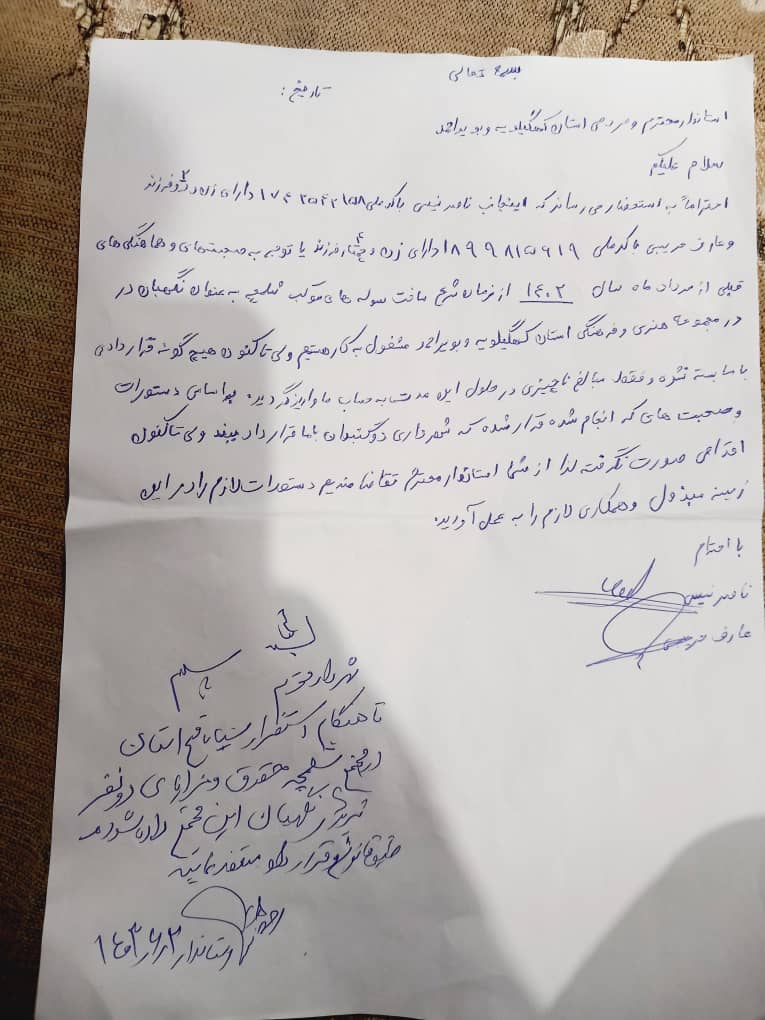 بسمه تعالی
تاریخ :
استاندار محترم و مردمی استان کهگیلویه و بویراحمد
سلام علیکم
احتراماً به استحضار می رساند که اینجانب ناصر نسیمی با کد ملی دارای زن و دو فرزند
و عارف حریبی با کد ملی دارای زن و چهار فرزند با توجه به صحبت های و هماهنگی های
قبلی از مرداد ماه سال ۱۴۰۲ از زمان شروع ساخت سوله های موکب شلمچه به عنوان نگهبان در
در مجموعه هنری و فرهنگی استان کهگیلویه و بویراحمد مشغول به کار هستیم ولی تاکنون هیچ گونه قراردادی
با ما بسته نشده و فقط مبالغ ناچیزی در طول این مدت به حساب ما واریز گردید. براساس دستورات
و صحبت های که انجام شده قرار شده که شهرداری دوگنبدان با ما قرارداد ببندد ولی تاکنون
اقدامی صورت نگرفته لذا از شما استاندار محترم تقاضا مندیم دستورات لازم را در این
زمینه مبذول و همکاری لازم را به عمل آورید.
با احترام
ناصر
عارف
شهردار محترم
سلام
تا هنگام استقرار استان
در مجتمع شلمچه حقوق و مزایای دو نفر
نگهبان این مجتمع داده شود و
طبق قانون قرارداد منعقد نمایید
استاندار